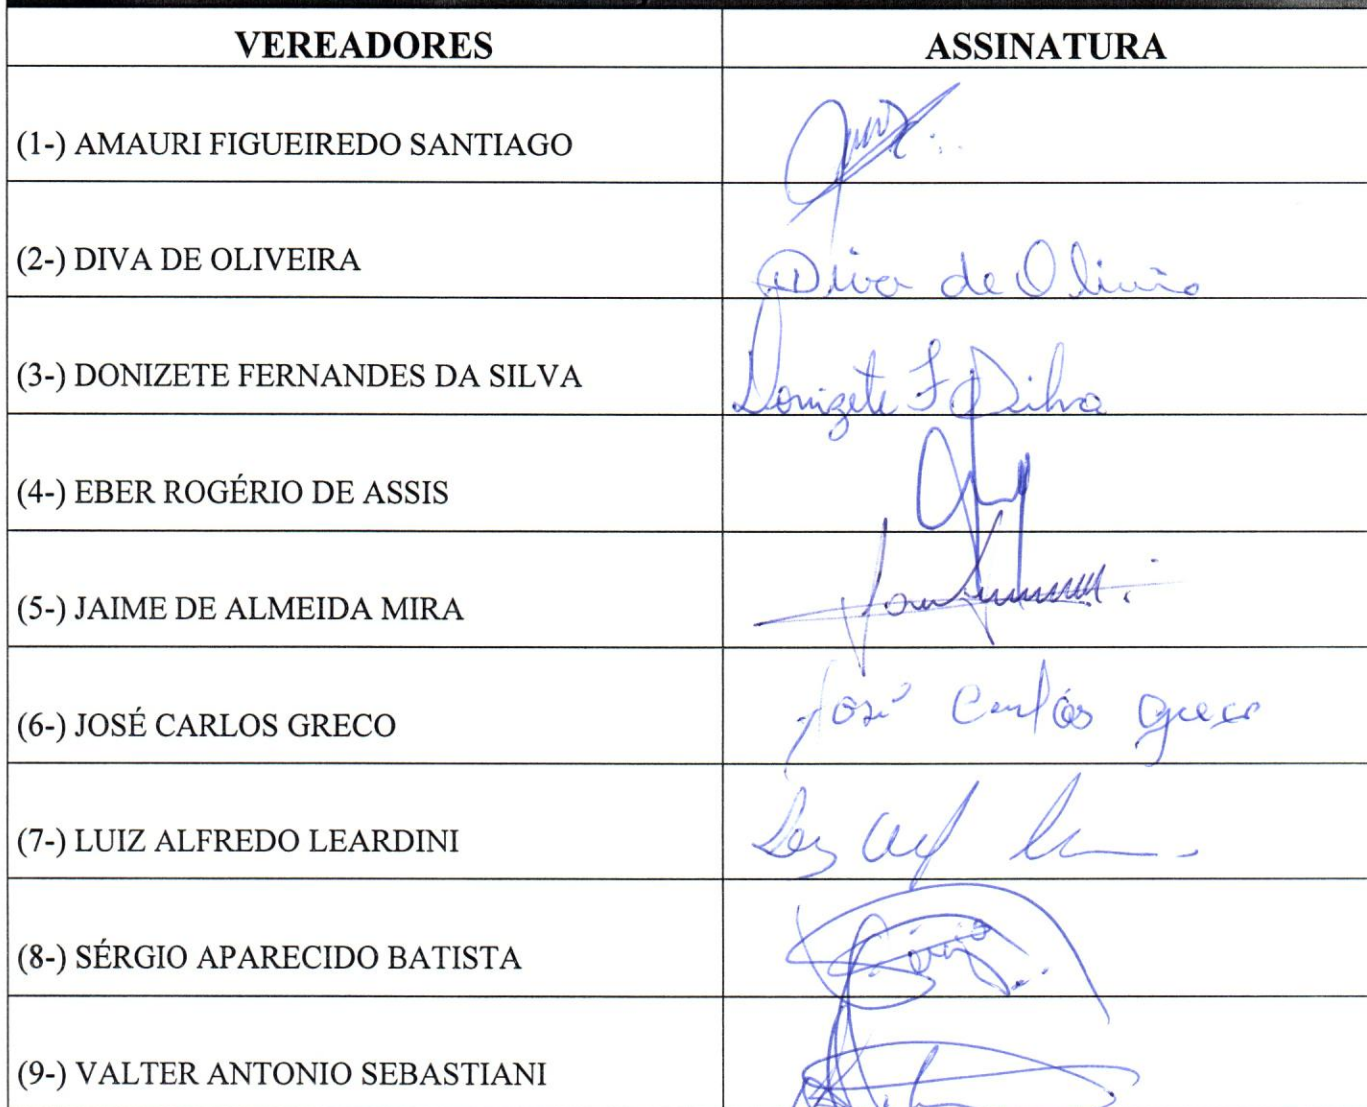 VEREADORES ASSINATURA
(1-) AMAURI FIGUEIREDO SANTIAGO
(2-) DIVA DE OLIVEIRA Diva de Oliveira
(3-) DONIZETE FERNANDES DA SILVA Donizete F Silva
(4-) EBER ROGÉRIO DE ASSIS
(5-) JAIME DE ALMEIDA MIRA
(6-) JOSÉ CARLOS GRECO José Carlos Greco
(7-) LUIZ ALFREDO LEARDINI
(8-) SÉRGIO APARECIDO BATISTA
(9-) VALTER ANTONIO SEBASTIANI